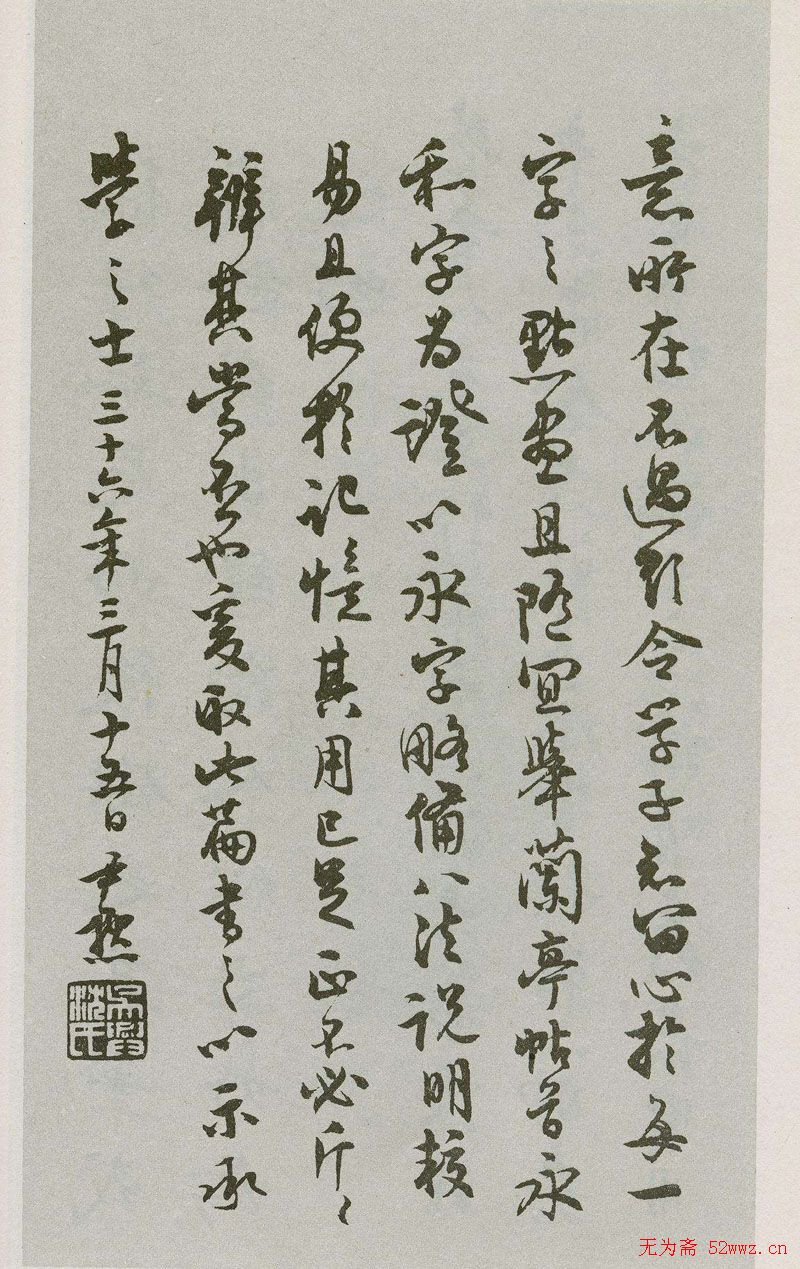 意所在不過欲令學子知留心於每一
字之點畫且隨宜舉蘭亭帖首永
和字為證以永字略備八法說明較
易且便於記憶其用已足正不必斤斤
辨其當否也爰取此篇書之以示承
學之士三十六年三月十五日尹默
吳興沈氏
无为斋 52wwz.cn